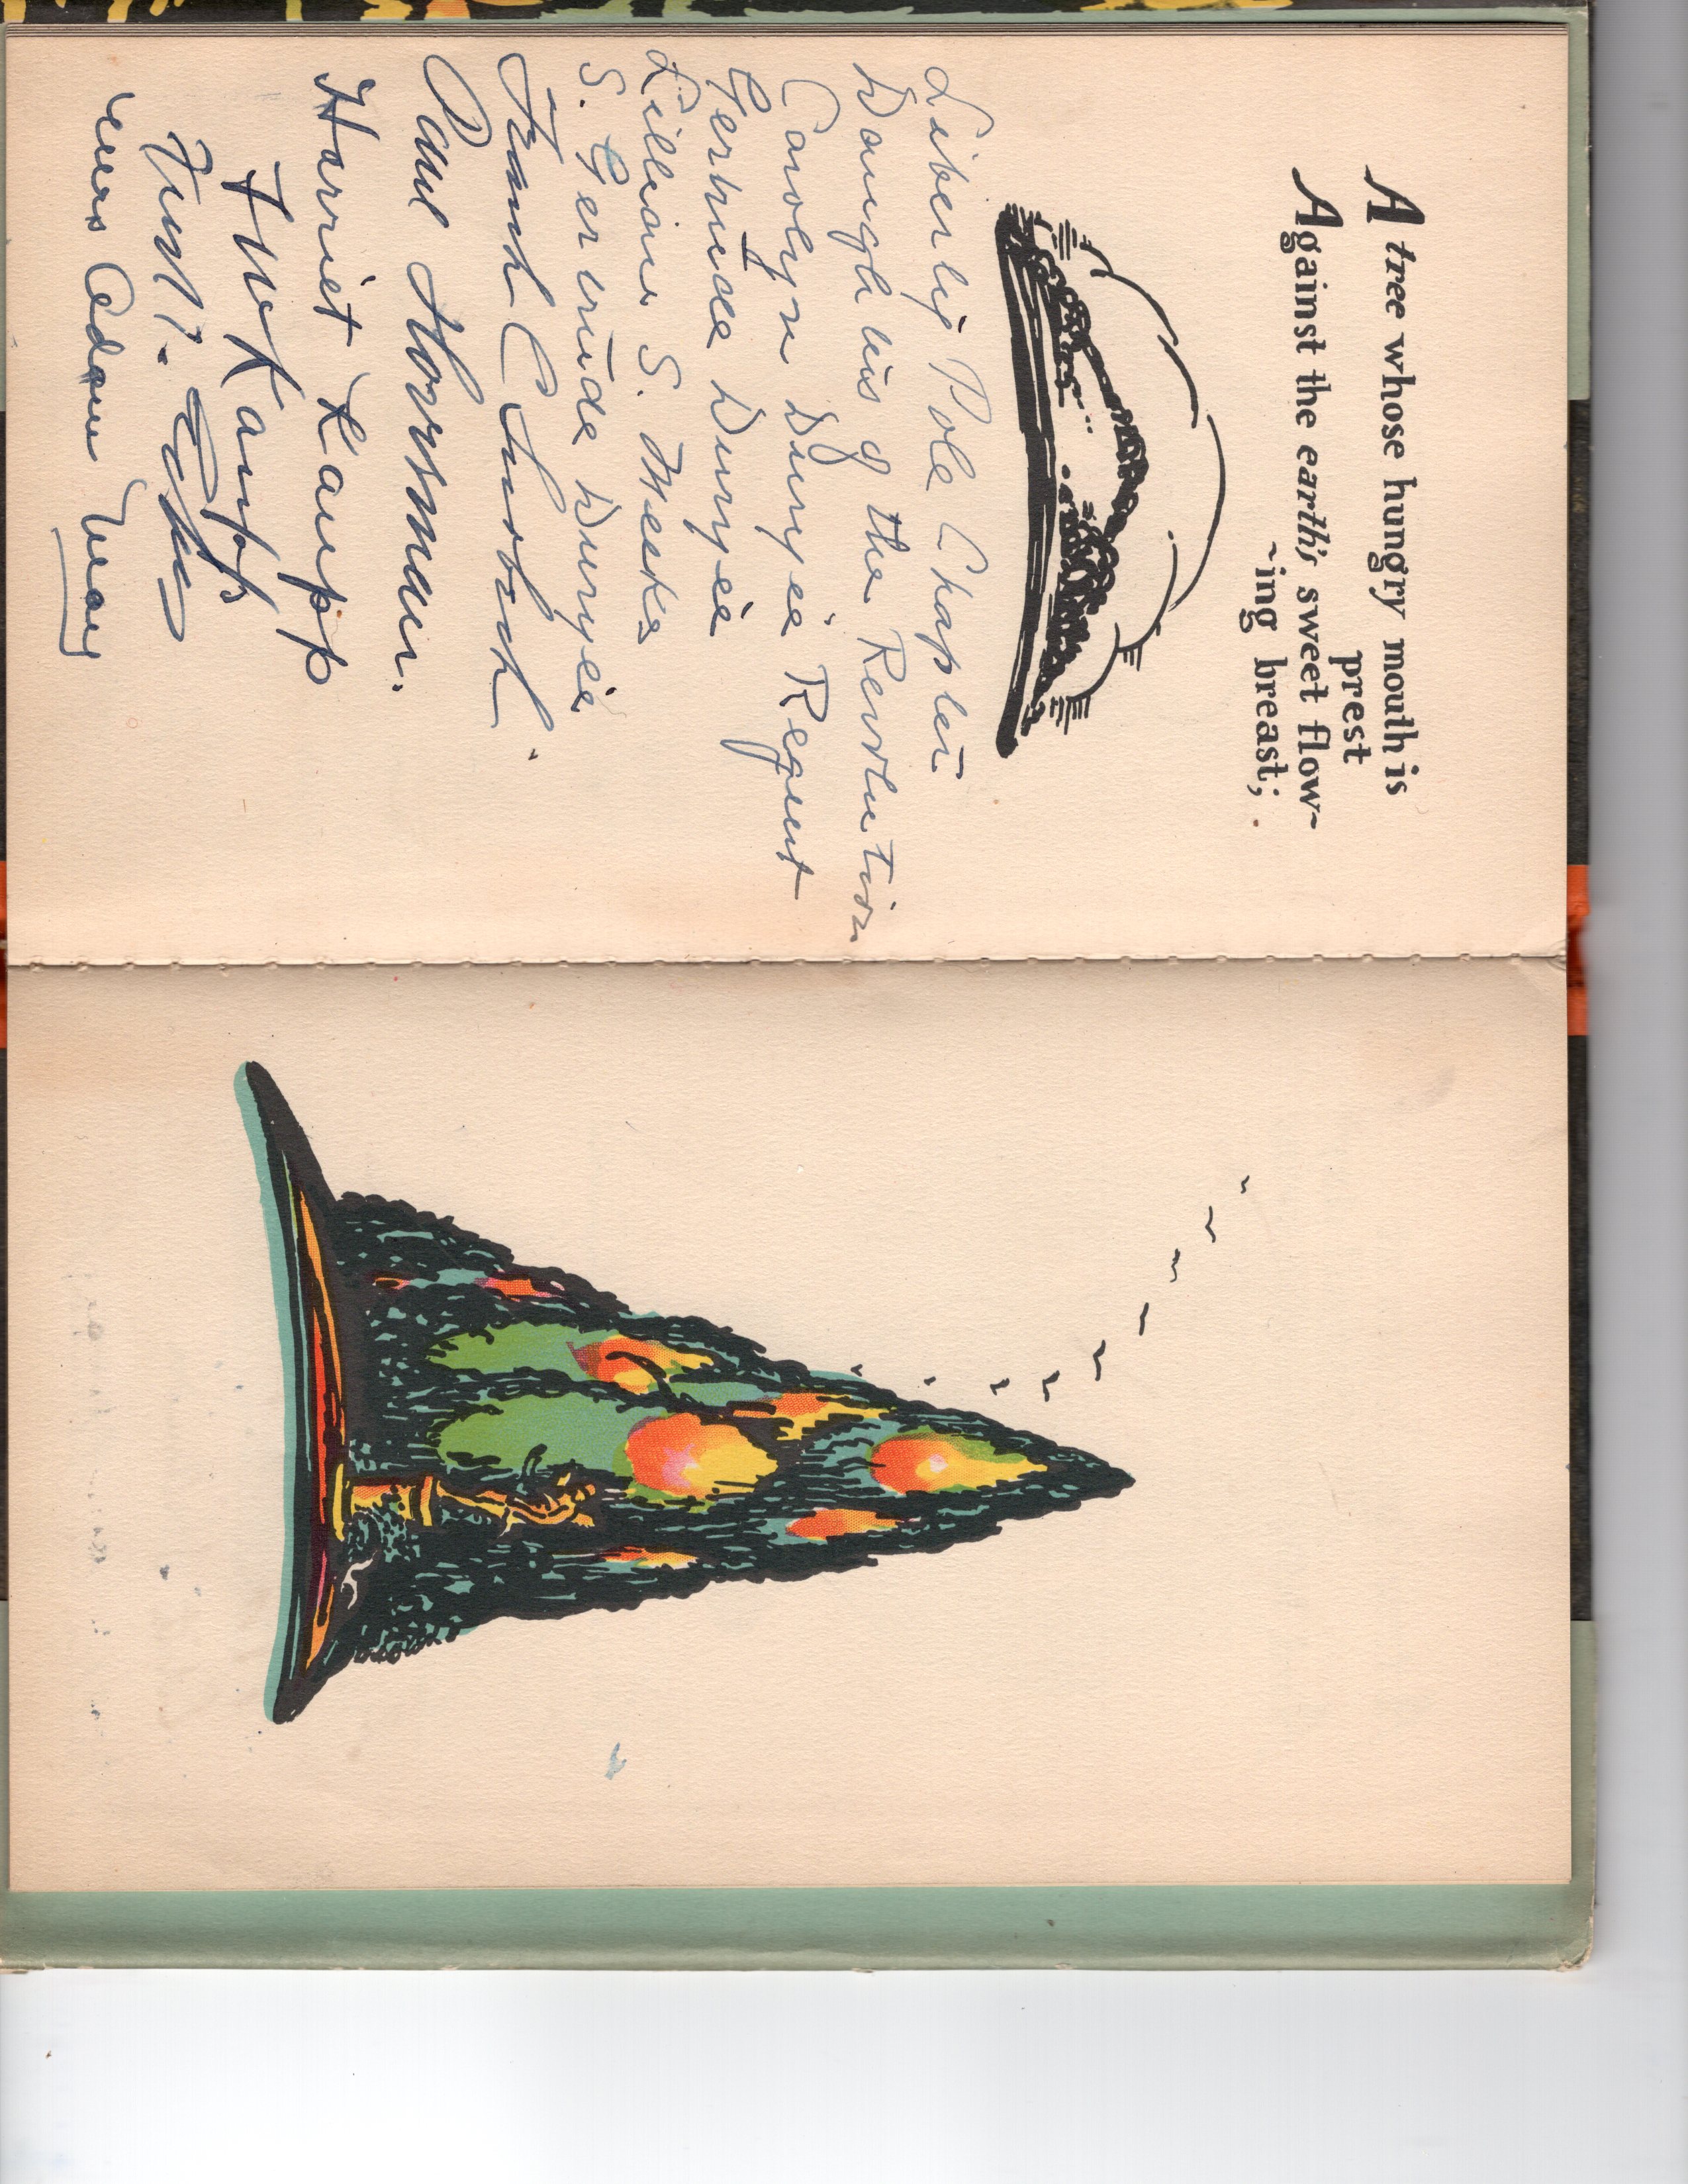 A tree whose hungry mouth is
prest
Against the earth's sweet flow~
~ing breast;
Liberty Pole Chapter
Daughters of the Revolution
Carolyn Duryea Regent
Gertrude Duryea
Lillian S. Meeks
S. Gertrude Duryea
Frank C
Paul Horsman.
Harriet Kaupp
F W Kaupp
Mrs Adam